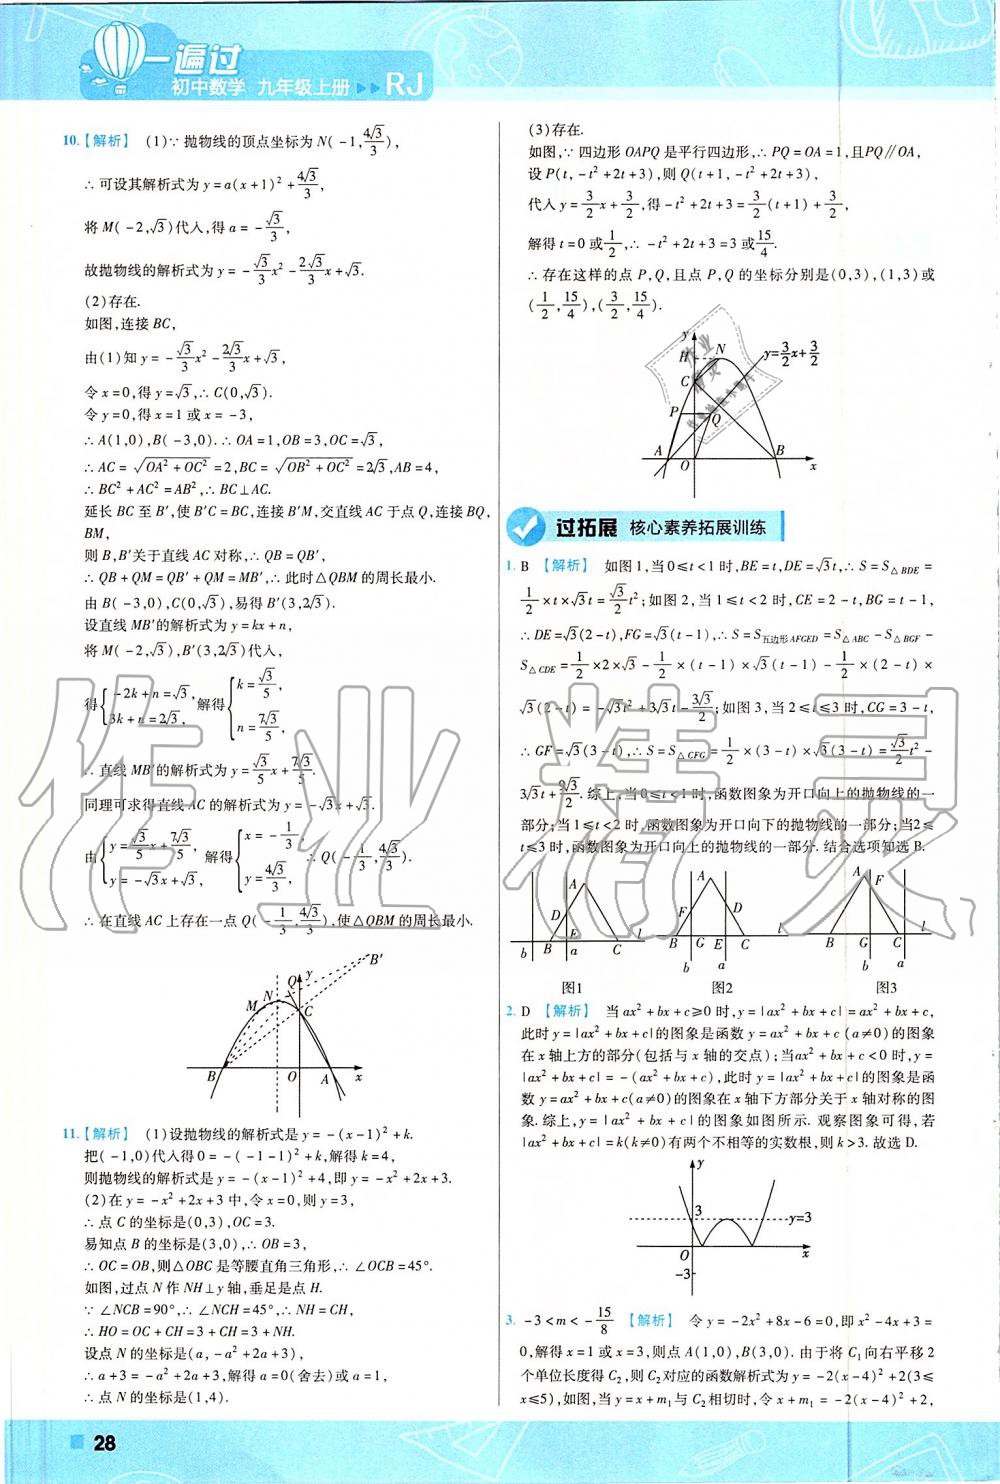 一遍过
初中数学 九年级上册 ▶▶ RJ
10.【解析】 (1)∵ 抛物线的顶点坐标为 N(－1,4√3/3),
∴ 可设其解析式为 y＝a(x＋1)²＋4√3/3,
将 M(－2,√3)代入,得 a＝－√3/3,
故抛物线的解析式为 y＝－√3/3x²－2√3/3x＋√3.
(2)存在.
如图,连接 BC,
由(1)知 y＝－√3/3x²－2√3/3x＋√3,
令 x＝0,得 y＝√3,∴ C(0,√3).
令 y＝0,得 x＝1 或 x＝－3,
∴ A(1,0),B(－3,0).∴ OA＝1,OB＝3,OC＝√3,
∴ AC＝√(OA²＋OC²)＝2,BC＝√(OB²＋OC²)＝2√3,AB＝4,
∴ BC²＋AC²＝AB²,∴ BC⊥AC.
延长 BC 至 B′,使 B′C＝BC,连接 B′M,交直线 AC 于点 Q,连接 BQ,
BM,
则 B,B′关于直线 AC 对称,∴ QB＝QB′,
∴ QB＋QM＝QB′＋QM＝MB′,∴ 此时△QBM 的周长最小.
由 B(－3,0),C(0,√3),易得 B′(3,2√3).
设直线 MB′的解析式为 y＝kx＋n,
将 M(－2,√3),B′(3,2√3)代入,
得{－2k＋n＝√3, 3k＋n＝2√3, 解得{k＝√3/5, n＝7√3/5,
∴ 直线 MB′的解析式为 y＝√3/5x＋7√3/5.
同理可求得直线 AC 的解析式为 y＝－√3x＋√3.
由{y＝√3/5x＋7√3/5, y＝－√3x＋√3, 解得{x＝－1/3, y＝4√3/3, ∴ Q(－1/3,4√3/3).
∴ 在直线 AC 上存在一点 Q(－1/3,4√3/3),使△QBM 的周长最小.
Q y B′
M N C
B O A x
11.【解析】 (1)设抛物线的解析式是 y＝－(x－1)²＋k.
把(－1,0)代入得 0＝－(－1－1)²＋k,解得 k＝4,
则抛物线的解析式是 y＝－(x－1)²＋4,即 y＝－x²＋2x＋3.
(2)在 y＝－x²＋2x＋3 中,令 x＝0,则 y＝3,
∴ 点 C 的坐标是(0,3),OC＝3.
易知点 B 的坐标是(3,0),∴ OB＝3,
∴ OC＝OB,则△OBC 是等腰直角三角形,∴ ∠OCB＝45°.
如图,过点 N 作 NH⊥y 轴,垂足是点 H.
∵ ∠NCB＝90°,∴ ∠NCH＝45°,∴ NH＝CH,
∴ HO＝OC＋CH＝3＋CH＝3＋NH.
设点 N 的坐标是(a,－a²＋2a＋3),
∴ a＋3＝－a²＋2a＋3,解得 a＝0(舍去)或 a＝1,
∴ 点 N 的坐标是(1,4).
28
(3)存在.
如图,∵ 四边形 OAPQ 是平行四边形,∴ PQ＝OA＝1,且PQ∥OA,
设 P(t,－t²＋2t＋3),则 Q(t＋1,－t²＋2t＋3),
代入 y＝3/2x＋3/2,得－t²＋2t＋3＝3/2(t＋1)＋3/2,
解得 t＝0 或1/2,∴ －t²＋2t＋3＝3 或15/4.
∴ 存在这样的点 P,Q,且点 P,Q 的坐标分别是(0,3),(1,3)或
(1/2,15/4),(3/2,15/4).
y H N y＝3/2x＋3/2
C
P Q
A O B x
过拓展 核心素养拓展训练
1. B 【解析】 如图 1,当 0≤t＜1 时,BE＝t,DE＝√3t,∴ S＝S△BDE＝
1/2×t×√3t＝√3/2t²;如图 2,当 1≤t＜2 时,CE＝2－t,BG＝t－1,
∴ DE＝√3(2－t),FG＝√3(t－1),∴ S＝S五边形AFGED＝S△ABC－S△BGF－
S△CDE＝1/2×2×√3－1/2×(t－1)×√3(t－1)－1/2×(2－t)×
√3(2－t)＝－√3t²＋3√3t－3√3/2;如图 3,当 2≤t≤3 时,CG＝3－t,
∴ GF＝√3(3－t),∴ S＝S△CFG＝1/2×(3－t)×√3(3－t)＝√3/2t²－
3√3t＋9√3/2.综上,当 0≤t＜1 时,函数图象为开口向上的抛物线的一
部分;当 1≤t＜2 时,函数图象为开口向下的抛物线的一部分;当2≤
t≤3 时,函数图象为开口向上的抛物线的一部分.结合选项知选 B.
A D B E C l b a
A F D B G E C l b a
A F B G C l b a
图1 图2 图3
2. D 【解析】 当 ax²＋bx＋c≥0 时,y＝|ax²＋bx＋c|＝ax²＋bx＋c,
此时 y＝|ax²＋bx＋c|的图象是函数 y＝ax²＋bx＋c(a≠0)的图象
在 x 轴上方的部分(包括与 x 轴的交点);当ax²＋bx＋c＜0 时,y＝
|ax²＋bx＋c|＝－(ax²＋bx＋c),此时 y＝|ax²＋bx＋c|的图象是函
数 y＝ax²＋bx＋c(a≠0)的图象在 x 轴下方部分关于 x 轴对称的图
象.综上,y＝|ax²＋bx＋c|的图象如图所示. 观察图象可得,若
|ax²＋bx＋c|＝k(k≠0)有两个不相等的实数根,则 k＞3. 故选 D.
y
3 y＝3
O x
－3
3. －3＜m＜－15/8 【解析】 令 y＝－2x²＋8x－6＝0,即 x²－4x＋3＝
0,解得 x＝1 或 x＝3,则点 A(1,0),B(3,0). 由于将 C₁向右平移 2
个单位长度得 C₂,则 C₂对应的函数解析式为 y＝－2(x－4)²＋2(3≤
x≤5),如图,当 y＝x＋m₁与 C₂相切时,令 x＋m₁＝－2(x－4)²＋2,
作业精灵